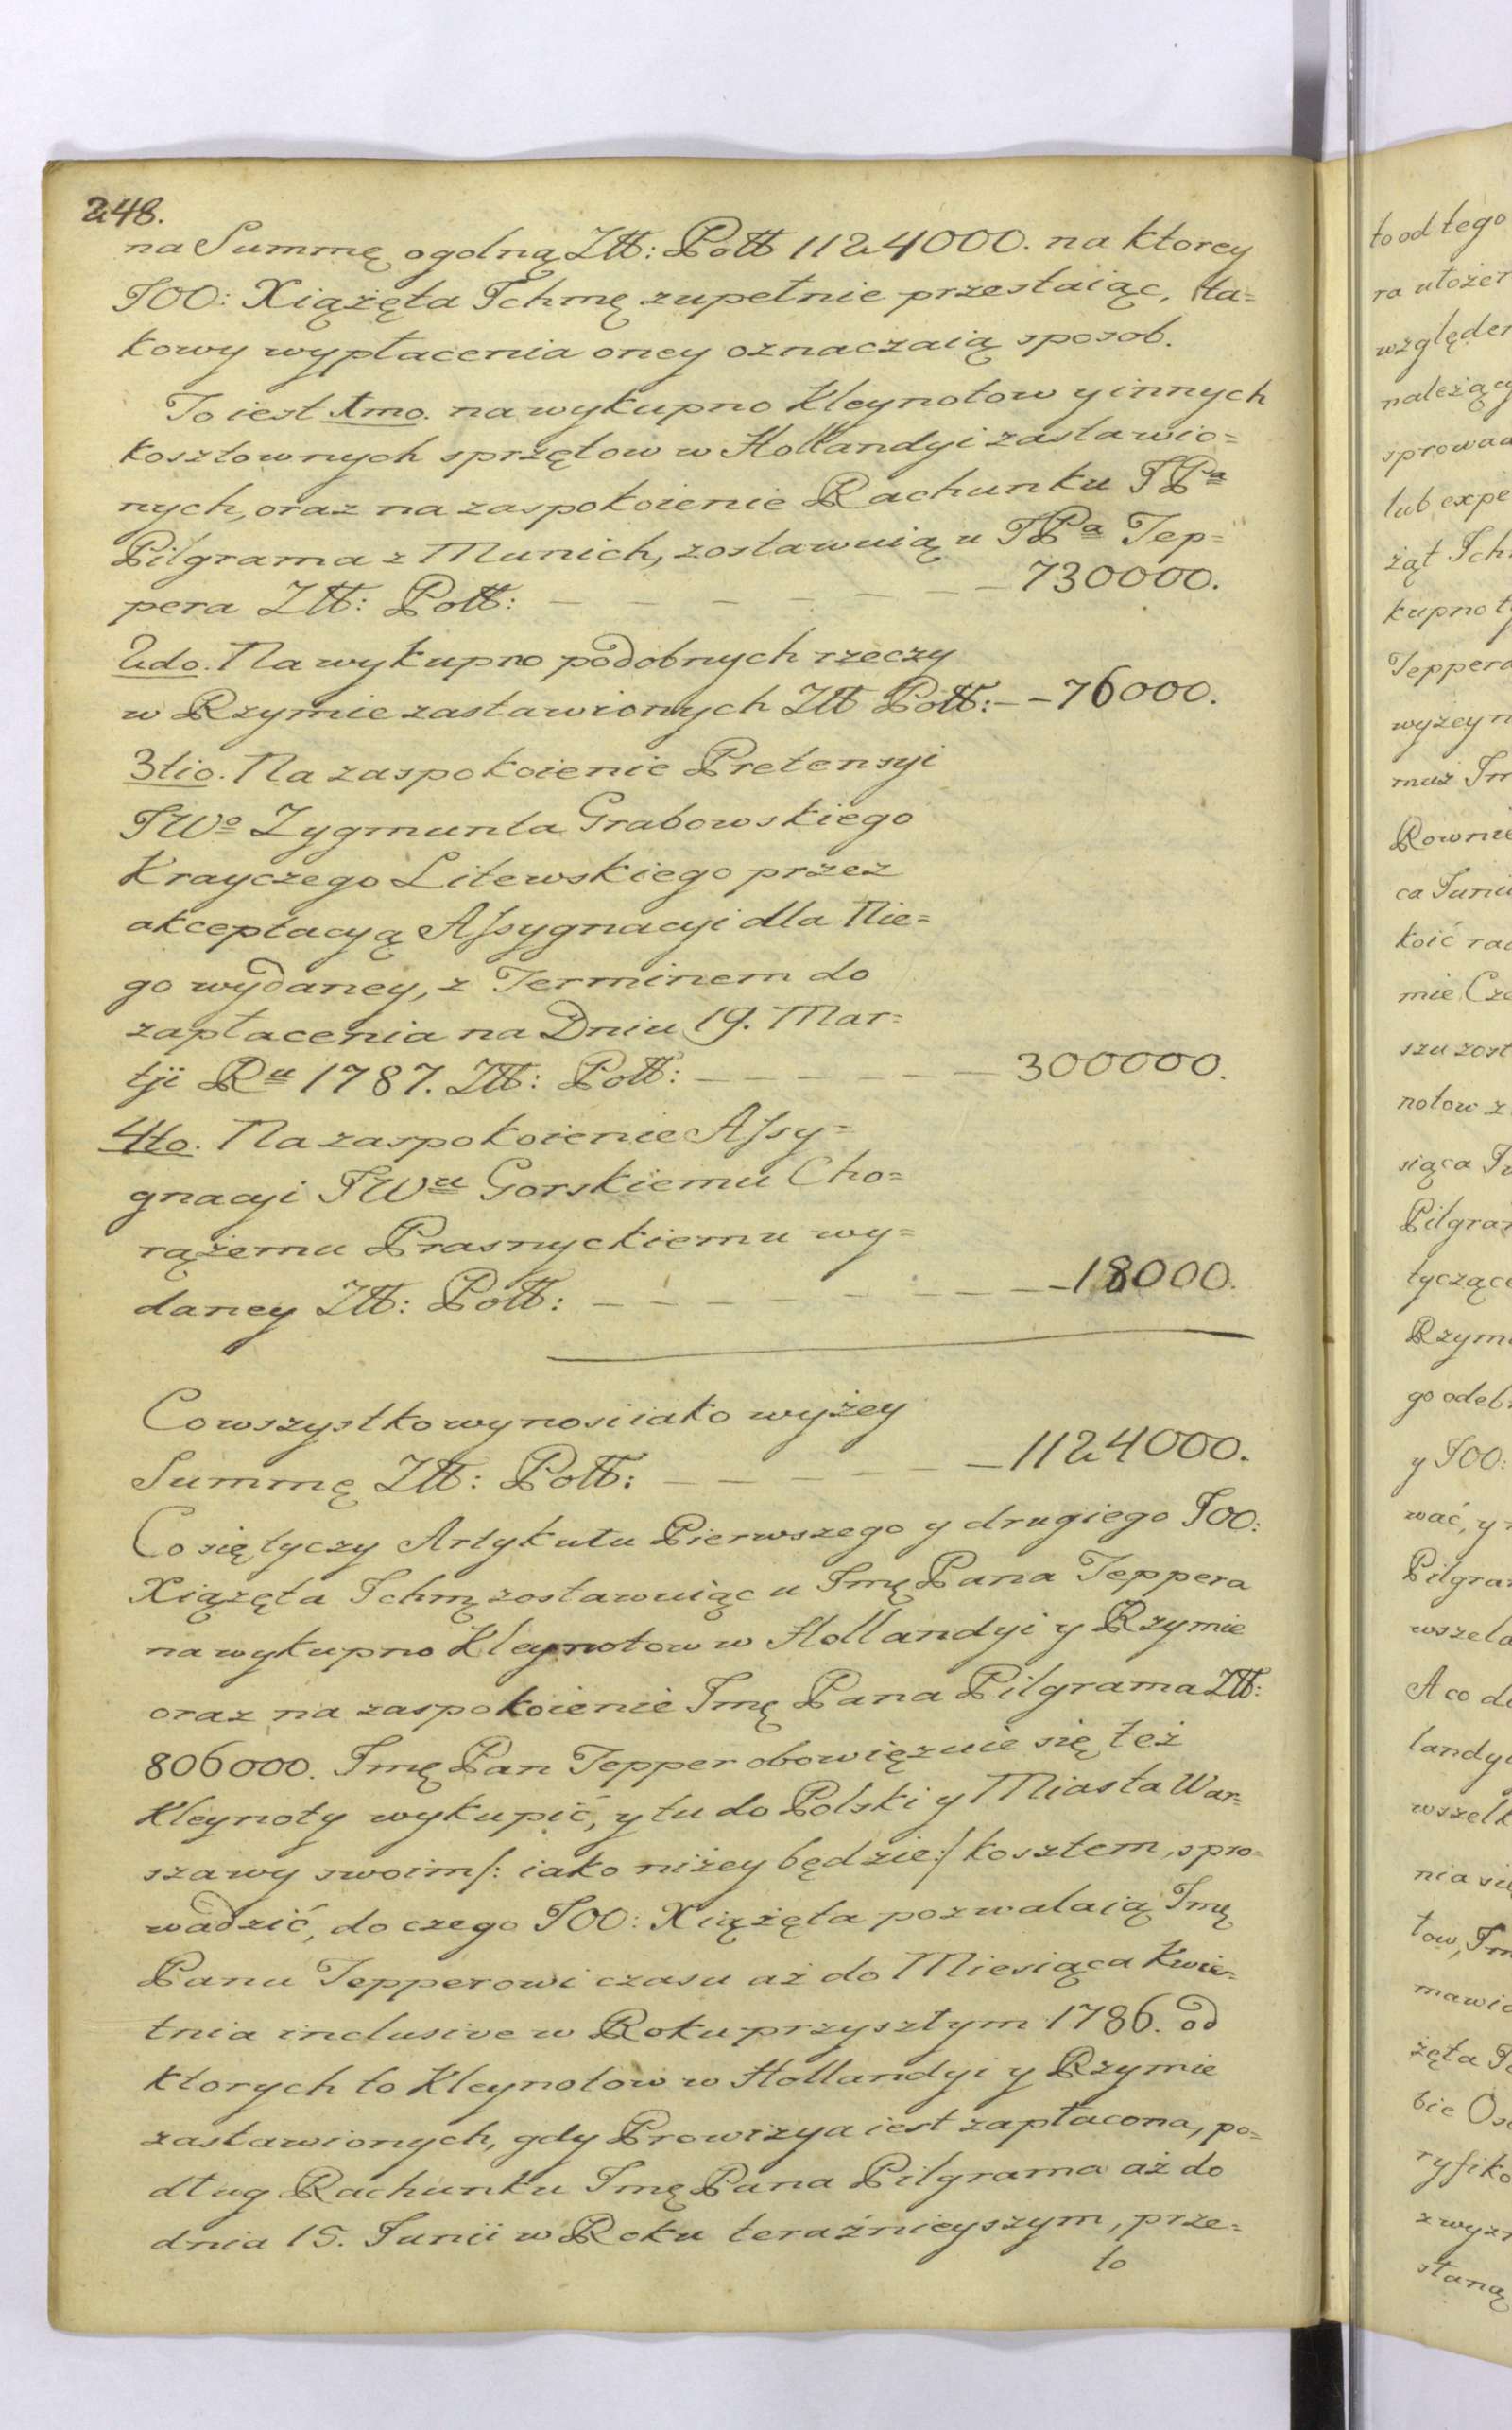 248.
na Summę ogolną Złł: Polł 1124000. na ktorey
JOO: Xiążęta Jchmę zupełnie przestaiąc, ta=
kowy wypłacenia oney oznaczaią sposob.
To iest 1mo. na wykupno Kleynotow y innych
kosztownych sprzętow w Hollandyi zastawio=
nych, oraz na zaspokoienie Rachunku JPa
Pilgrama z Munich, zostawuią u JPa Tep=
pera Złł: Polł: — — — — — — — 730000.
2do. Na wykupno podobnych rzeczy
w Rzymie zastawionych Złł Polł: — — 76000.
3tio. Na zaspokoienie Pretensyi
JWo Zygmunta Grabowskiego
Krayczego Litewskiego przez
akceptacyą Assygnacyi dla Nie=
go wydaney, z Terminem do
zapłacenia na Dniu 19. Mar=
tji Ru 1787. Złł: Polł: — — — — — — 300000.
4to. Na zaspokoienie Assy=
gnacyi JWu Gorskiemu Cho=
rążemu Prasnyckiemu wy=
daney Złł: Polł: — — — — — — — — 18000.
Co wszystko wynosi iako wyżey
Summę Złł: Polł: — — — — — — 1124000.
Co się tyczy Artykułu Pierwszego y drugiego JOO:
Xiążęta Jchmę zostawuiąc u Jmę Pana Teppera
na wykupno Kleynotow w Hollandyi y Rzymie
oraz na zaspokoienie Jmę Pana Pilgrama Złł:
806000. Jmę Pan Tepper obowięzuie się też
Kleynoty wykupić, y tu do Polski y Miasta War=
szawy swoim /: iako niżey będzie :/ kosztem, spro=
wadzić, do czego JOO: Xiążęta pozwalaią Jmę
Panu Tepperowi czasu aż do Miesiąca Kwie=
tnia inclusive w Roku przyszłym 1786. od
ktorych to Kleynotow w Hollandyi y Rzymie
zastawionych, gdy Prowizya iest zapłacona, po=
dług Rachunku Jmę Pana Pilgrama aż do
dnia 15. Junii w Roku teraźnieyszym, prze=
to
to od tego
ra ułożen
względem
należący
sprowad
lub expe
żąt Jch
kupno t
Teppera
wyżey n
muż Jm
Rownie
ca Juni
koić rac
mie Cze
szu zost
notow z
siąca Ju
Pilgram
tyczące
Rzymi
go odeb
y JOO:
wać, y
Pilgra
wszela
A co do
landyi
wszelk
nia si
tow, Jm
mawia
żęta J
bie Os
ryfiko
zwyż
staną